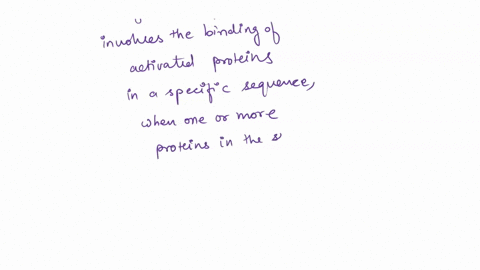 involves the binding of
activated proteins
in a specific sequence,
when one or more
proteins in the s